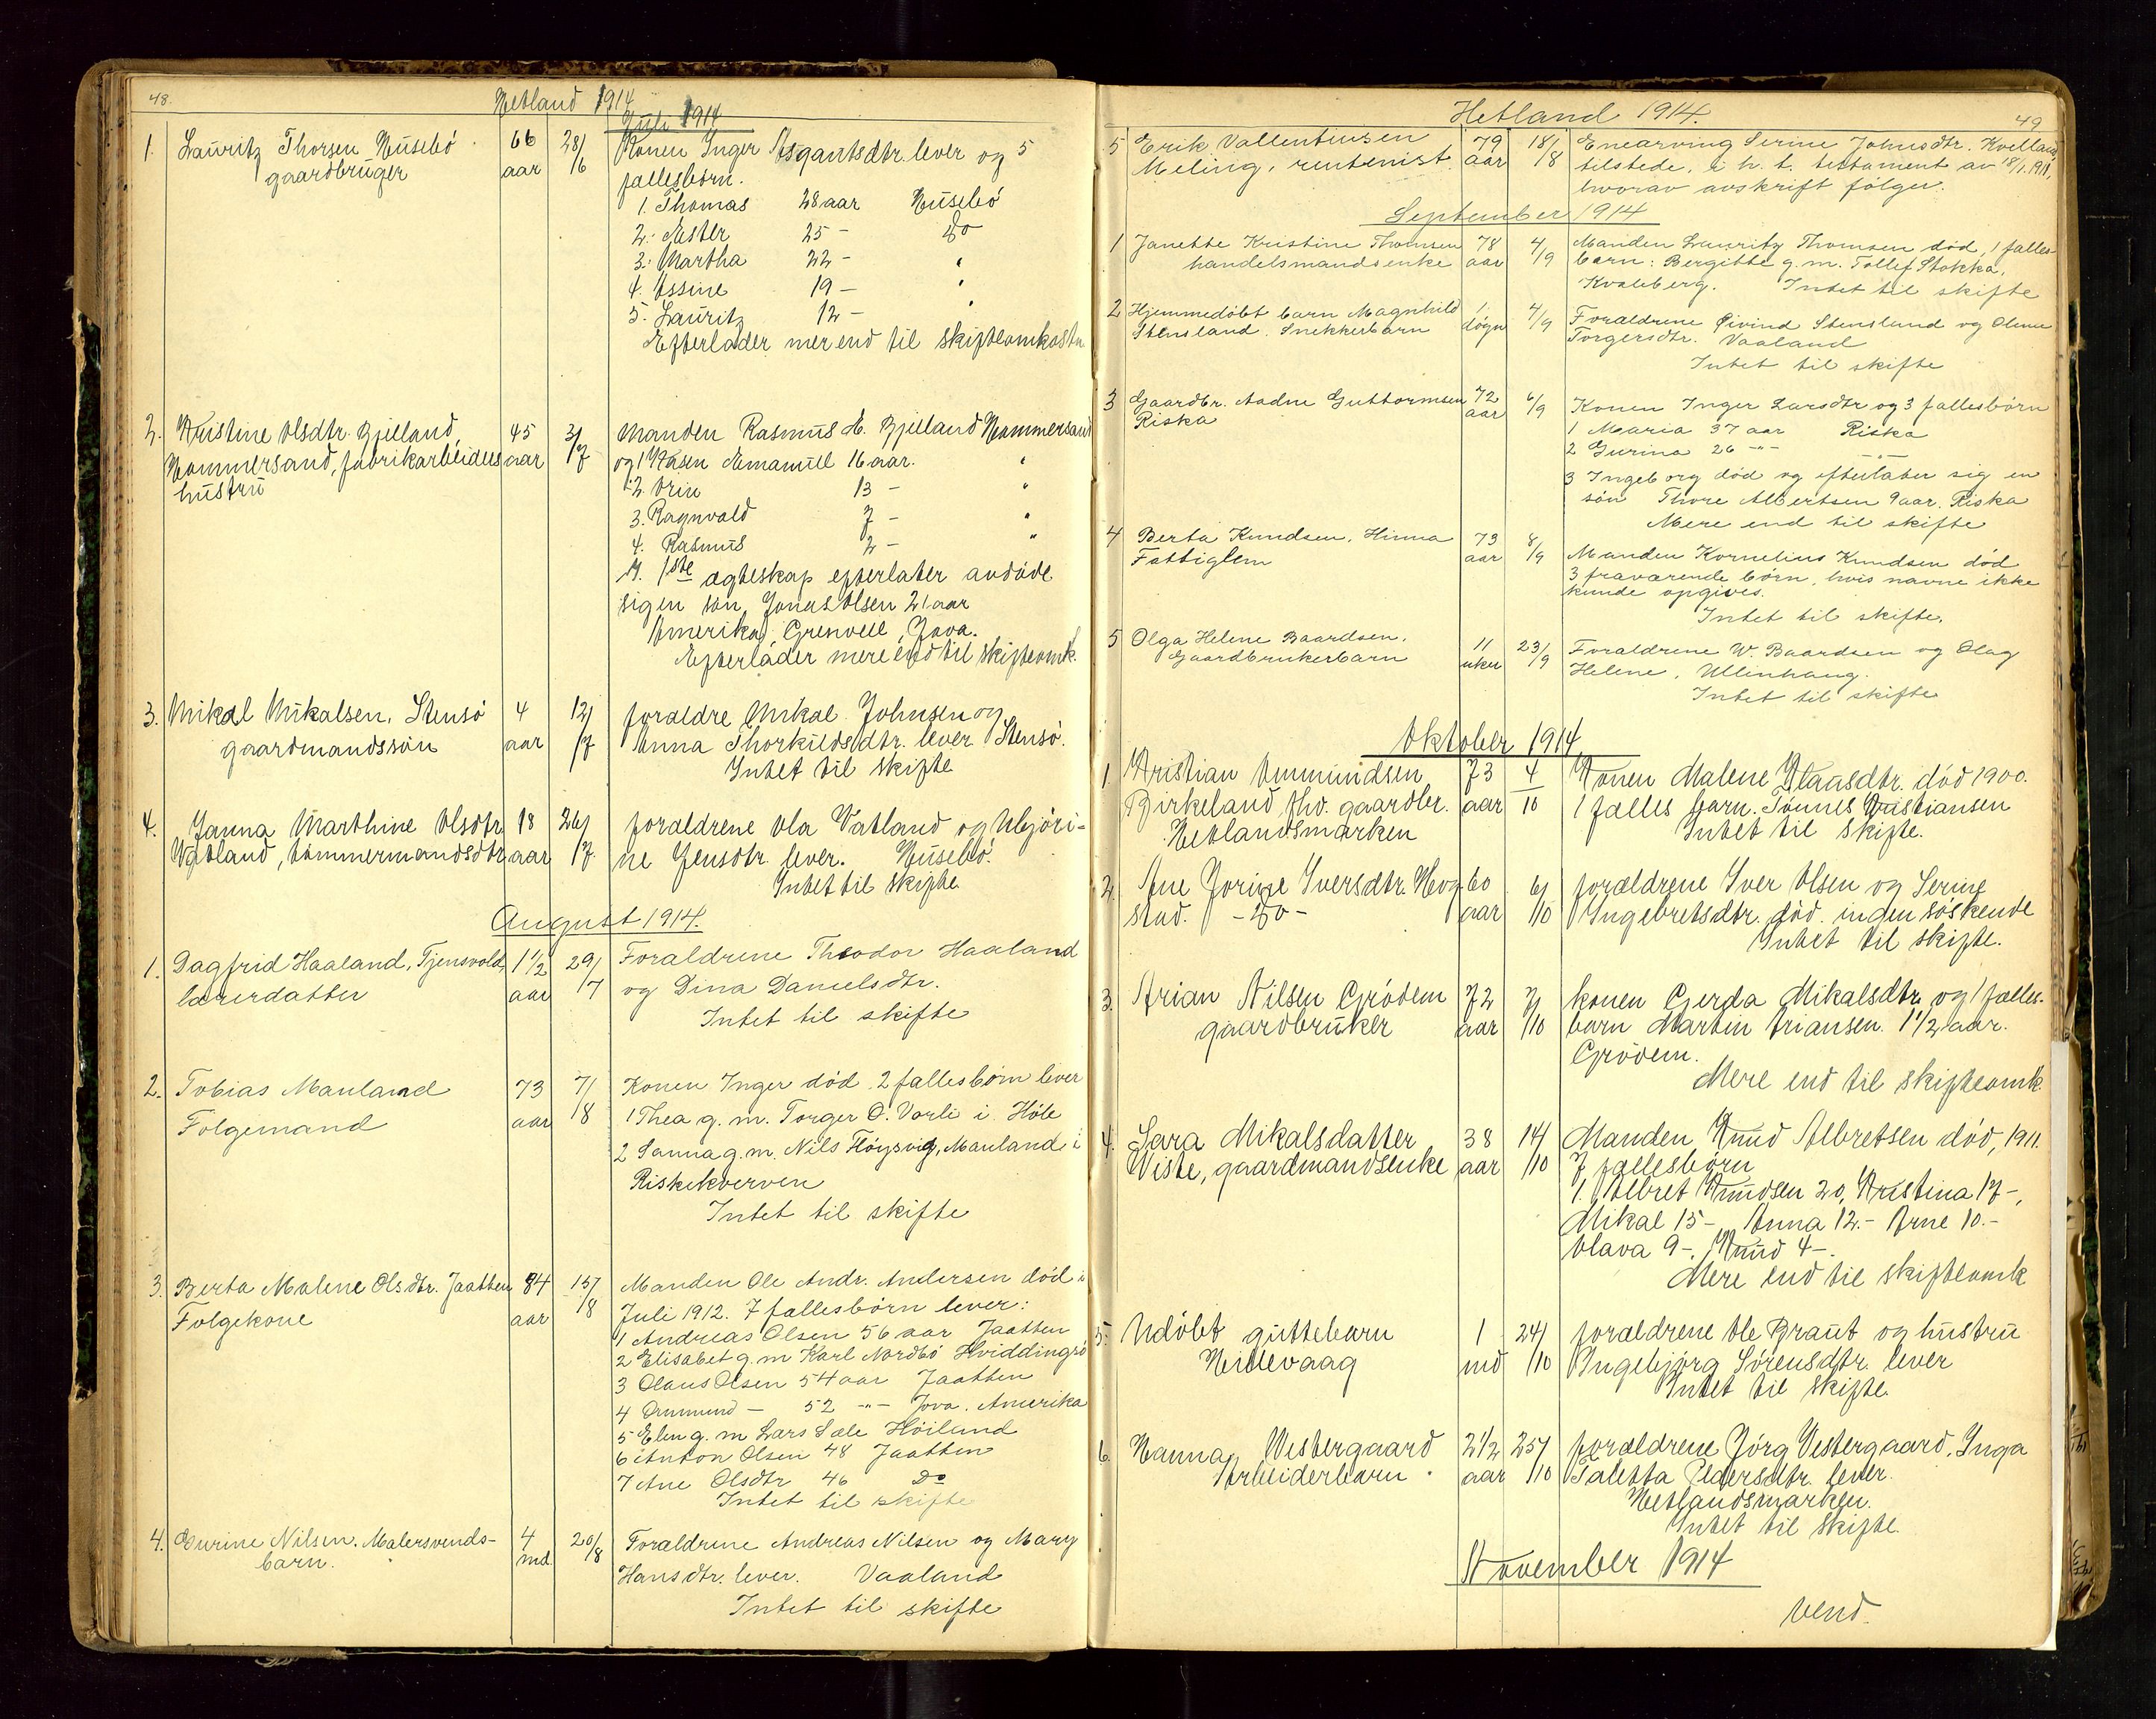 48.
Hetland 1914
Juli 1914
1. Lauritz Thorsen Husebö 66 28/6 Konen Inger Asgautsdtr. lever og 5
gaardbruger aar fællesbörn.
1. Thomas 28 aar Husebö
2. Ester 25 - do
3. Martha 22 - "
4. Ossine 19 - "
5. Lauritz 12 - "
Efterlader mer end til skifteomkostn
2. Kristine Olsdtr. Gjilland, 45 3/7 Manden Rasmus H. Gjilland Hommersand
Hommersand, fabrikarbeiders aar og 1 Emanuel 16 aar. "
hustru 2. Orin 13 - "
3. Ragnvald 7 - "
4. Rasmus 2 - "
1ste ægteskap efterlater avdöde
sig en sön, Jonas Olsen 21 aar
Amerika, Java.
Efterlader mere end til skifteomk.
3. Mikal Mikalsen, Stensö 4 12/7 forældre Mikal Johnsen og
gaardmandssön aar Anna Thorkildsdtr. lever Stensö.
Intet til skifte
4. Janna Marthine Olsdtr 18 26/7 forældrene Ola Vatland og Abjöri-
Vatland, tömmermandsdtr aar ne Jensdtr. lever. Husebö.
Intet til skifte
August 1914.
1. Dagfrid Haaland, Tjensvold, 1 1/2 29/7 Forældrene Theodor Haaland
lærerdatter aar og Dina Danielsdtr.
Intet til skifte
2. Tobias Mauland 73 7/8 Konen Inger död. 2 fællesbörn lever
Folgemand aar 1 Thea g. m. Torger O. Vorli i Höle
2 Sanna g. m. Nils Höysvig, Mauland i
Riskekverven
Intet til skifte
3. Berta Malene Olsdtr. Jaatten 84 15/8 Manden Ole Andr. Andersen död i
Folgekone aar Juli 1912. 7 fællesbörn lever:
1 Andreas Olsen 56 aar Jaatten
2 Elisabet g. m Karl Nordbö Hviddingsö
3 Olaus Olsen 54 aar Jaatten
4 Ommund - 52 -"- Jova. Amerika
5 Elen g. m Lars Sæle Höiland
6 Anton Olsen 48 Jaatten
7 Ane Olsdtr 46 Do
Intet til skifte
4. Gurine Nilsen. Malersvends- 4 20/8 Forældrene Andreas Nilsen og Mary
barn. md Hansdtr. lever. Vaaland
Intet til skifte
Hetland 1914.
49
5 Erik Vallentinsen 79 18/8 Enearving Serine Johnsdtr. Kvelland
Meling, rentenist. aar tilstede, i h. t. testament av 18/1. 1911,
hvorav avskrift fölger.
September 1914
1 Janette Kristine Thomsen 78 4/9 Manden Lauritz Thomsen död, 1 fælles-
handelsmandsenke aar barn: Bergitte g. m. Tollef Stokka,
Kvaleberg. Intet til skifte
2 Hjemmedöbt barn Magnhild 1 4/9 Forældrene Eivind Stensland og Oline
Stensland. Snekkerbarn dögn Torgersdtr. Vaaland
Intet til skifte
3 Gaardbr. Aadne Guttormsen 72 6/9 Konen Inger Larsdtr og 3 fællesbörn
Riska aar 1 Maria 37 aar Riska
2 Gurina 26 -"- -"-
3 Ingeborg död og efterlater sig en
sön Thore Albertsen 9 aar. Riska
Mere end til skifte
4 Berta Knudsen, Hinna 73 8/9 Manden Kornelius Knudsen död
Fattiglem aar 3 fraværende börn, hvis navne ikke
kunde opgives.
Intet til skifte.
5 Olga Helene Baardsen. 11 23/9 Forældrene W. Baardsen og Olag
Gaardbrukerbarn uker Helene, Ullenhaug.
Intet til skifte
Oktober 1914
1. Kristian Ommundsen 73 4/10 Konen Malene Klaasdtr. död 1900.
Birkeland, fhv. gaardbr. aar 1 fælles barn. Tönnes Kristiansen
Hetlandsmarken Intet til skifte.
2. Ane Jorine Iversdtr. Hog- 60 6/10 forældrene Iver Olsen og Serine
stad. - do - aar Ingebretsdtr. död. ingen söskende
Intet til skifte.
3. Arian Nilsen Grödem 72 7/10 konen Gerda Mikalsdtr. og 1 fælles-
gaardbruker aar barn Martin Ariansen. 1 1/2 aar.
Grödem.
Mere end til skifteomk.
4. Sara Mikalsdatter 38 14/10 Manden Knud Albretsen död, 1911.
Viste, gaardmandsenke aar 7 fællesbörn
1. Albret Knudsen 20, Kristina 17 -,
Mikal 15 - Anna 12. - Arne 10. -
Olava 9 -, Knud 4 -.
Mere end til skifteomk
5. Udöbt guttebarn 1 24/10 forældrene Ole Braut og hustru
Hillevaag md Ingebjörg Sörensdtr. lever
Intet til skifte.
6. Hanna Westergaard 2 1/2 25/10 forældrene Jörg Vestergaard, Inga
Arbeiderbarn. aar Taletta Pedersdtr. lever.
Hetlandsmarken.
Intet til skifte.
November 1914
Vend.